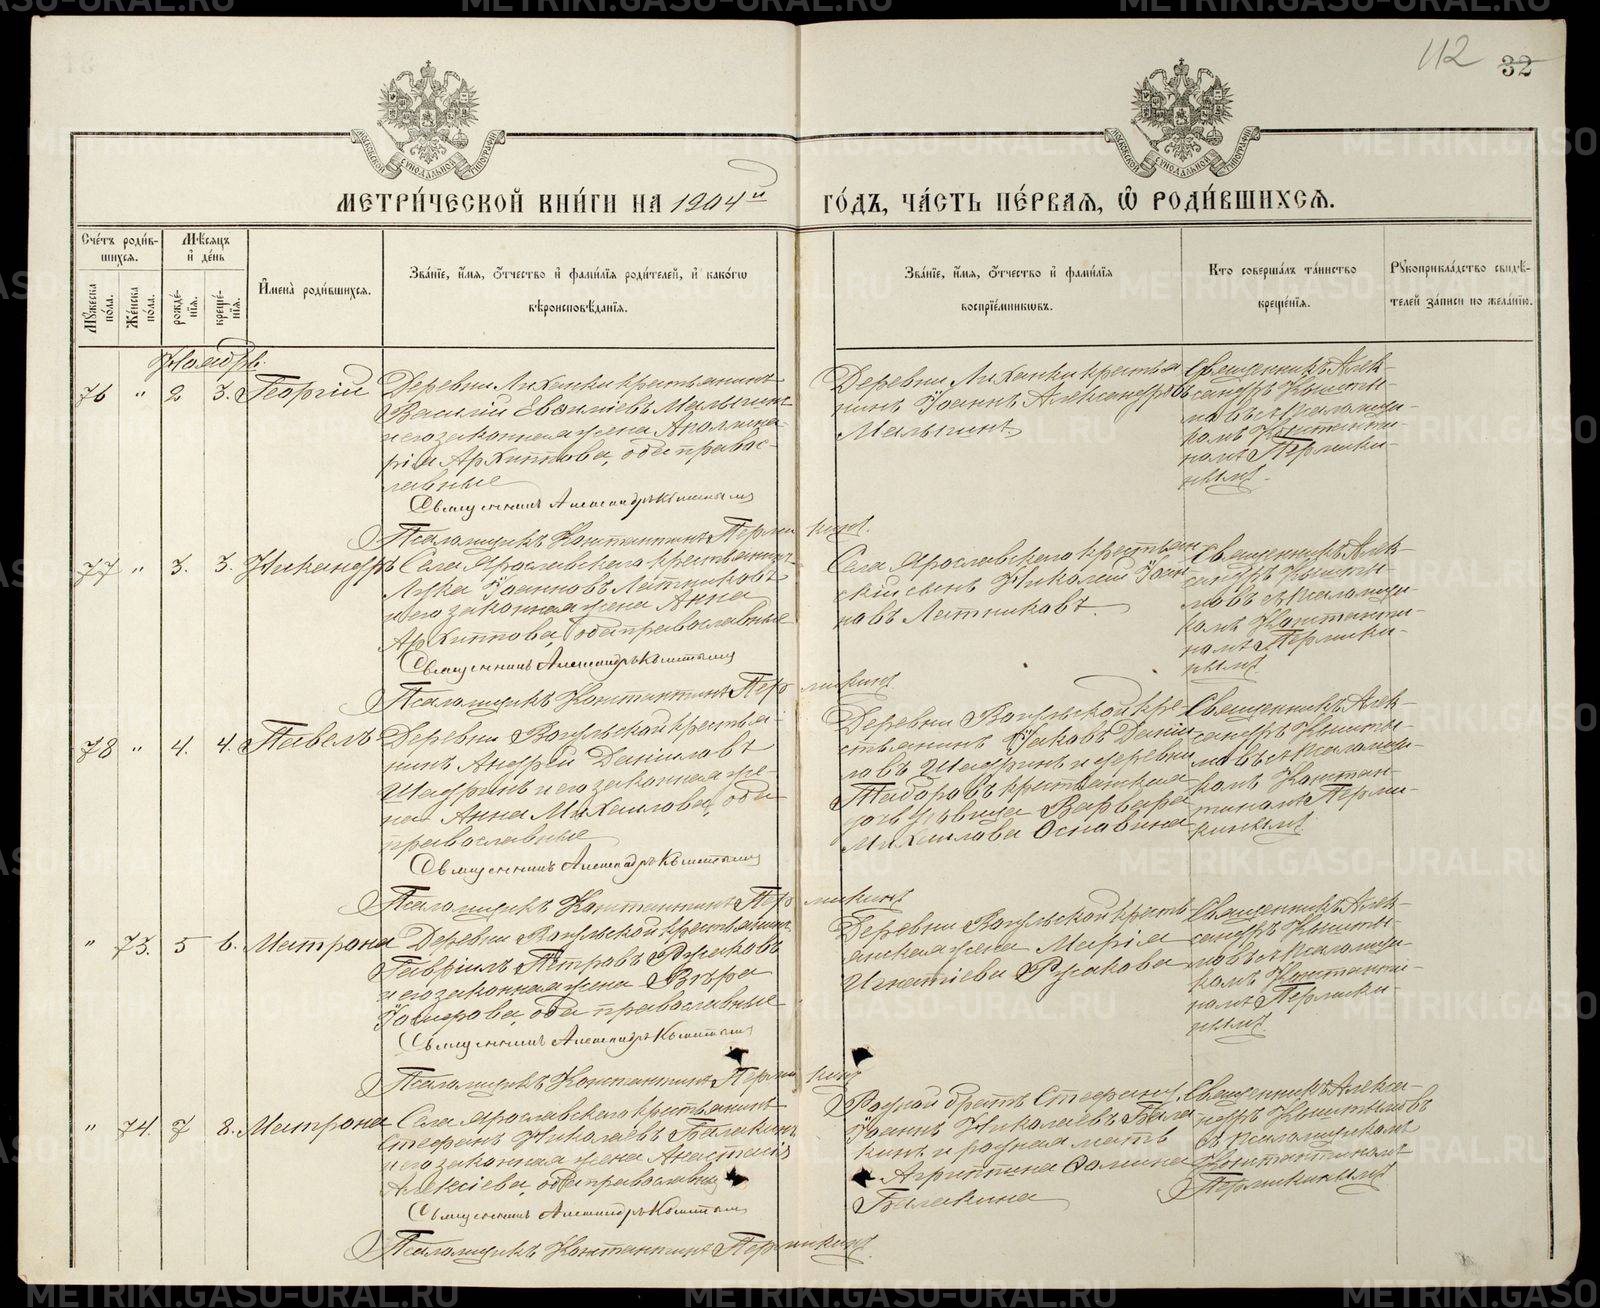 112 32
МЕТРИ́ЧЕСКОЙ КНИ́ГИ НА 1904й ГО́ДЪ, ЧА́СТЬ ПЕ́РВАЯ, Ѡ҆ РОДИ́ВШИХСѦ.
Сче́тъ роди́вшихсѧ.
Мꙋ́жеска по́ла.
Же́нска по́ла.
Мѣ́сѧцъ и҆ де́нь
рожде́нїѧ.
креще́нїѧ.
И҆мена̀ роди́вшихсѧ.
Зва́нїе, и҆́мѧ, ѻ҆́тчество и҆ фами́лїѧ роди́телей, и҆ како́гѡ
вѣроисповѣ́данїѧ.
Зва́нїе, и҆́мѧ, ѻ҆́тчество и҆ фами́лїѧ
воспрїе́мникѡвъ.
Кто̀ соверша́лъ та́инство
креще́нїѧ.
Рꙋкоприкла́дство свидѣ́телей за́писи по жела́нїю.
Ноябрь.
76 " 2 3. Георгій
Деревни Лиханки крестьянинъ
Василій Евѳиміевъ Малыгинъ
и его законная жена Аполлина-
рія Архиппова, оба правос-
лавные
Священникъ Александръ Кыштымовъ
Псаломщикъ Константинъ Пермикинъ.
Деревни Лиханки крестья-
нинъ Іоаннъ Александровъ
Малыгинъ.
Священникъ Алек-
сандръ Кышты-
мовъ съ псаломщи-
комъ Константи-
номъ Пермики-
нымъ.
77 " 3. 3. Никандръ
Села Ярославскаго крестьянинъ
Лука Іоанновъ Латниковъ
и его законная жена Анна
Архиппова, оба православные
Священникъ Александръ Кыштымовъ
Псаломщикъ Константинъ Пермикинъ
Села Ярославскаго крестьян-
скій сынъ Николай Іоан-
новъ Латниковъ.
Священникъ Алек-
сандръ Кышты-
мовъ съ псаломщи-
комъ Константи-
номъ Пермики-
нымъ
78 " 4. 4. Павелъ
Деревни Вогульской крестья-
нинъ Андрей Даніиловъ
Шадринъ и его законная же-
на Анна Михаилова, оба
православные
Священникъ Александръ Кыштымовъ
Псаломщикъ Константинъ Пермикинъ
Деревни Вогульской кре-
стьянинъ Іаковъ Даніи-
ловъ Шадринъ и деревни
Таборовъ крестьянская
дочь дѣвица Варвара
Михаилова Основина
Священникъ Алек-
сандръ Кышты-
мовъ съ псаломщи-
комъ Констан-
тиномъ Перми-
кинымъ
" 73. 5 6. Матрона
Деревни Вогульской крестьянинъ
Гавріилъ Петровъ Русаковъ
и его законная жена Вѣра
оба православные
Священникъ Александръ Кыштымовъ
Псаломщикъ Константинъ Пермикинъ
Деревни Вогульской кресть-
янская жена Марія
Игнатіева Русакова
Священникъ Алек-
сандръ Кышты-
мовъ съ псаломщи-
комъ Константи-
номъ Пермики-
нымъ
" 74. 7 8. Матрона
Села Ярославскаго крестьянинъ
Стефанъ Николаевъ Балакинъ
и его законная жена Анастасія
Алексіева, оба православны
Священникъ Александръ Кыштымовъ
Псаломщикъ Константинъ Пермикинъ.
Родной братъ Стефана,
Іоаннъ Николаевъ Бала-
кинъ и родная мать
Агриппина Ѳомина
Балакина
Священникъ Алекса-
ндръ Кыштымовъ
съ псаломщикомъ
Константиномъ
Пермикинымъ
METRIKI.GASO-URAL.RU